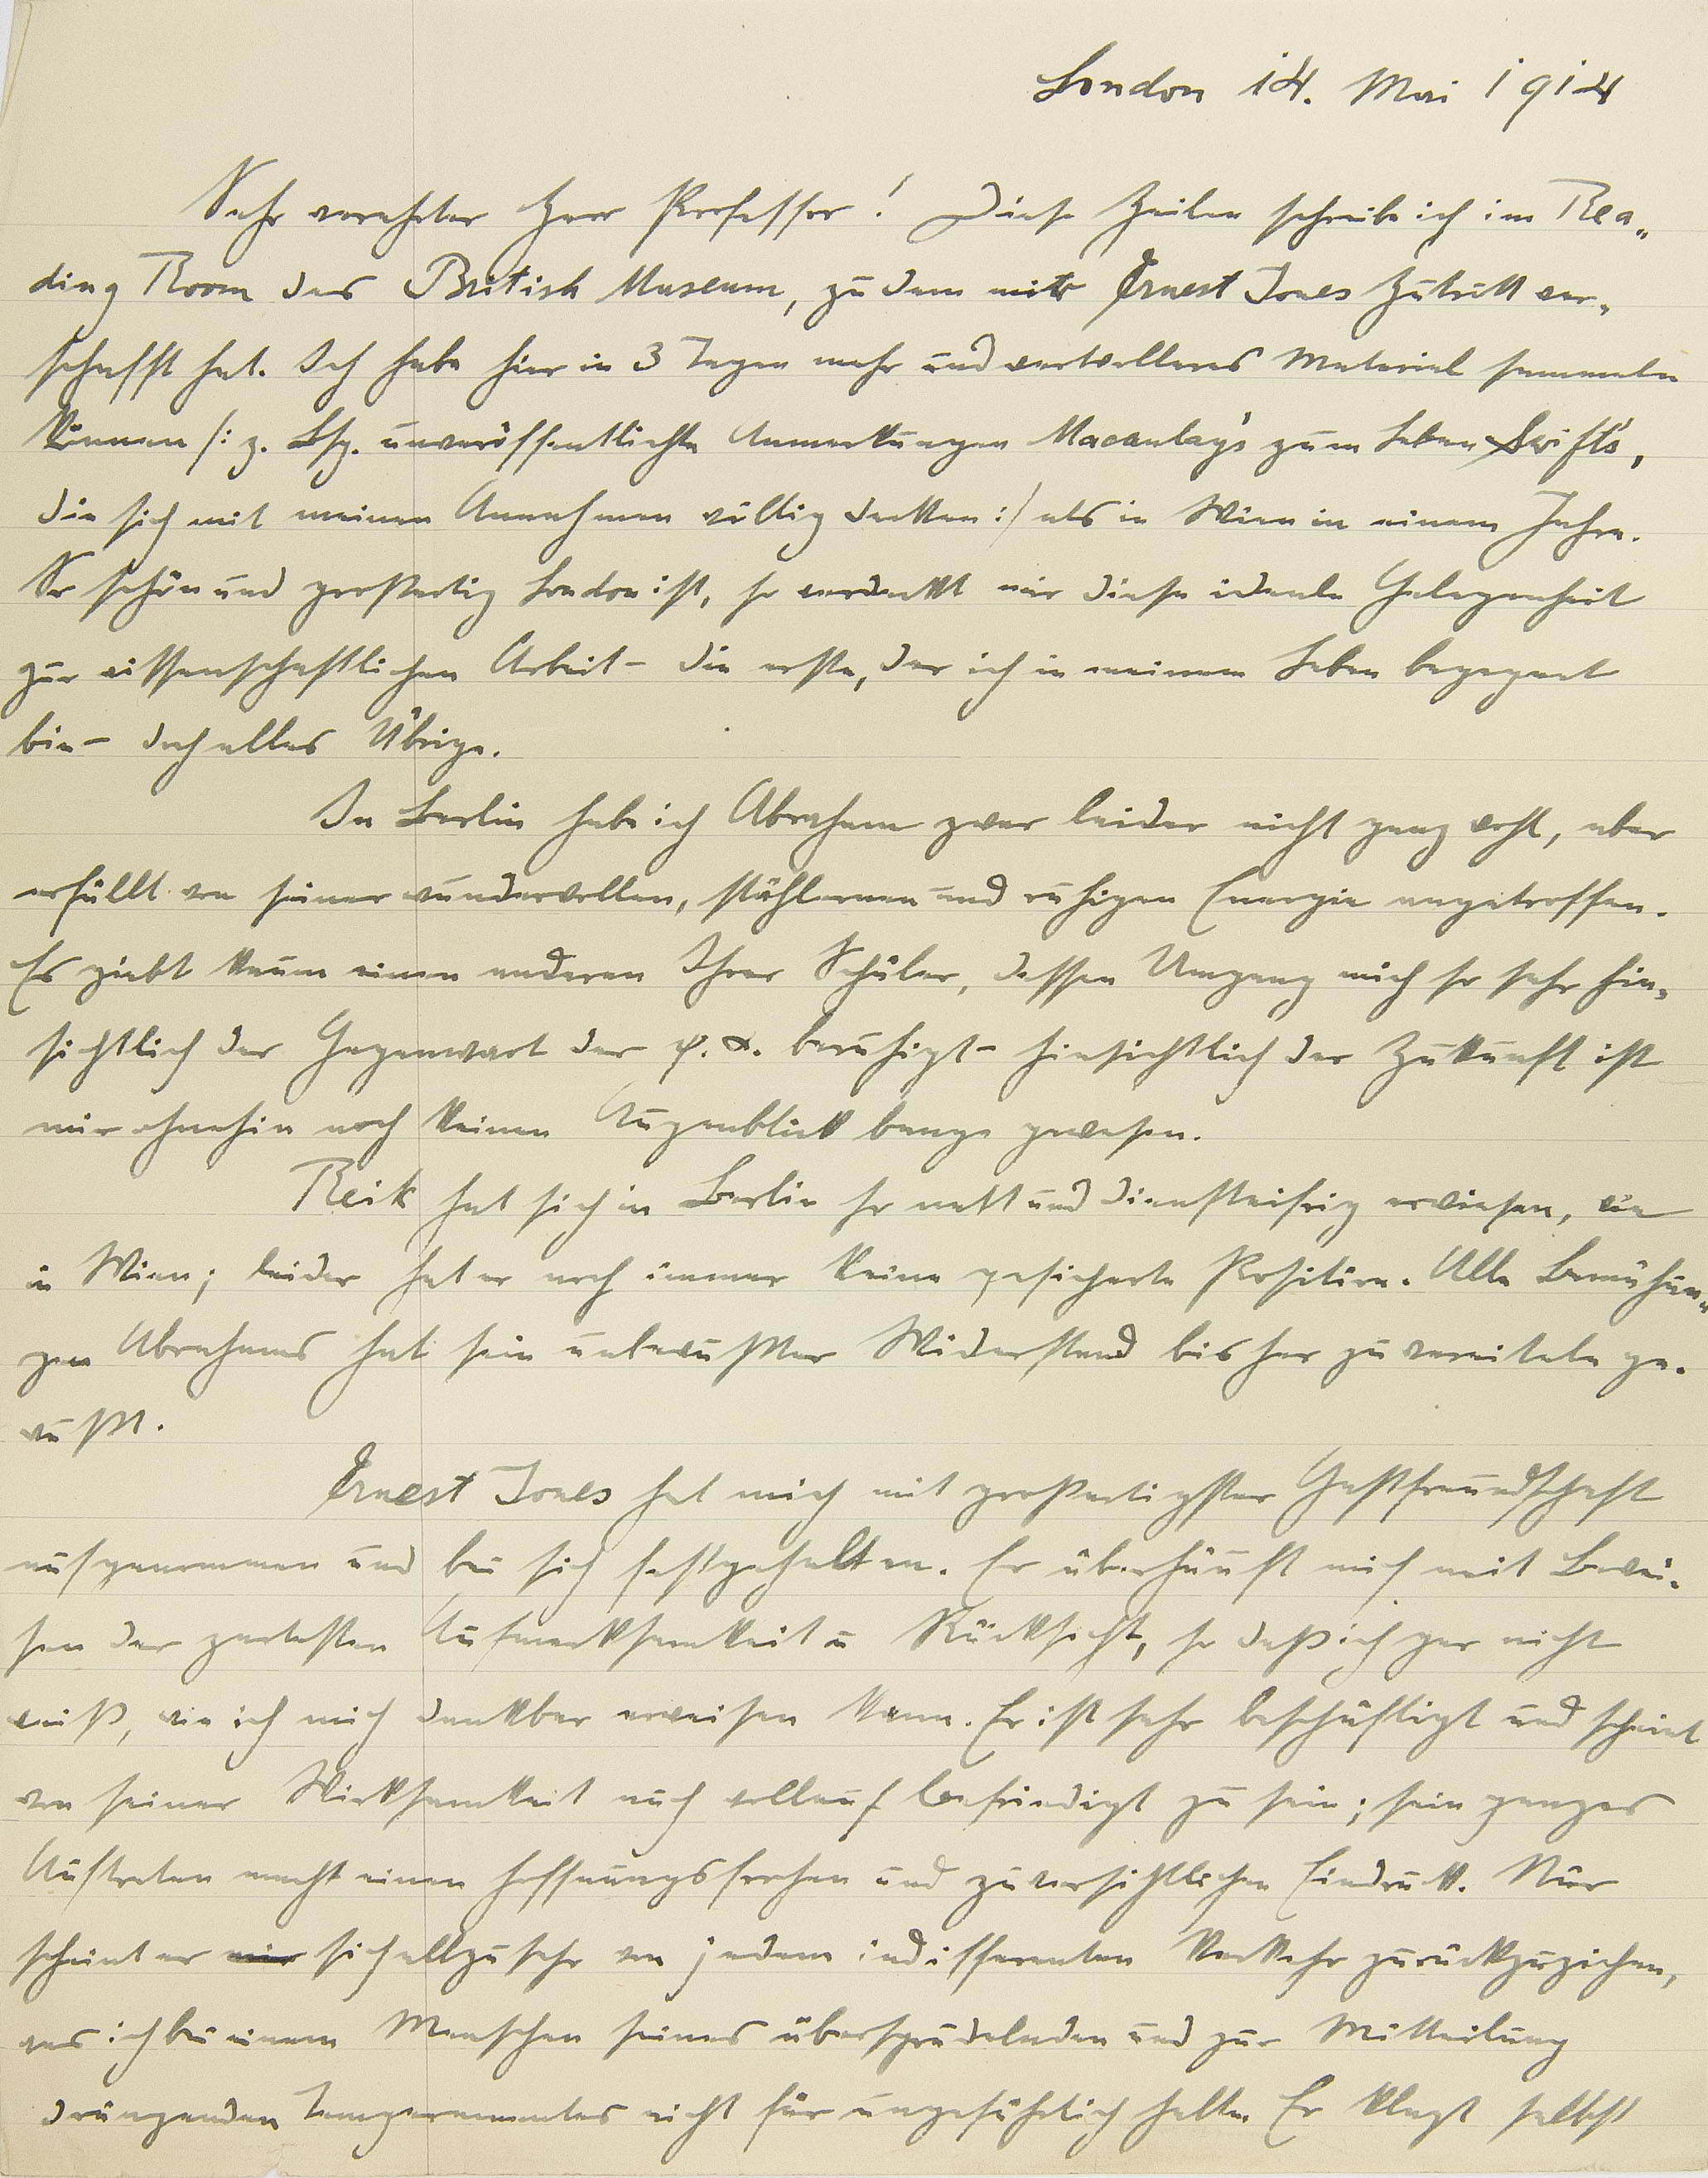 London 14. Mai 1914
Sehr verehrter Herr Professor! Diese Zeilen schreibe ich im Rea„
ding Room des British Museum, zu dem mir Ernest Jones Zutritt ver„
schafft hat. Ich habe hier in 3 Tagen mehr und wertvolleres Material sammeln
können /: z. Bsp. unveröffentlichte Anmerkungen Macaulay's zum Leben Swift's,
die sich mit meinen Annahmen völlig decken :/ als in Wien in einem Jahre.
So schön und großartig London ist, so verdeckt mir diese ideale Gelegenheit
zur wissenschaftlichen Arbeit – die erste, der ich in meinem Leben begegnet
bin – doch alles Übrige.
In Berlin habe ich Abraham zwar leider nicht ganz wohl, aber
erfüllt von seiner wundervollen, stählernen und ruhigen Energie angetroffen.
Es giebt kaum einen anderen Ihrer Schüler, dessen Umgang mich so sehr hin„
sichtlich der Gegenwart der ψ.α. beruhigt – hinsichtlich der Zukunft ist
mir ohnehin noch keinen Augenblick bange gewesen.
Reik hat sich in Berlin so nett und diensteifrig erwiesen, wie
in Wien; leider hat er noch immer keine gesicherte Position. Alle Bemühun„
gen Abrahams hat sein unbewußter Widerstand bisher zu vereiteln ge„
wußt.
Ernest Jones hat mich mit großartigster Gastfreundschaft
aufgenommen und bei sich festgehalten. Er überhäuft mich mit Bewei„
sen der zartesten Aufmerksamkeit u Rücksicht, so daß ich gar nicht
weiß, wie ich mich dankbar erweisen kann. Er ist sehr beschäftigt und scheint
von seiner Wirksamkeit auch vollauf befriedigt zu sein; sein ganzes
Auftreten macht einen hoffnungsfrohen und zuversichtlichen Eindruck. Nur
scheint er mir sich allzusehr von jedem indifferenten Verkehr zurückzuziehen,
was ich bei einem Menschen seines übersprudelnden und zur Mitteilung
drängenden Temperamentes nicht für ungefährlich halte. Er klagt selbst